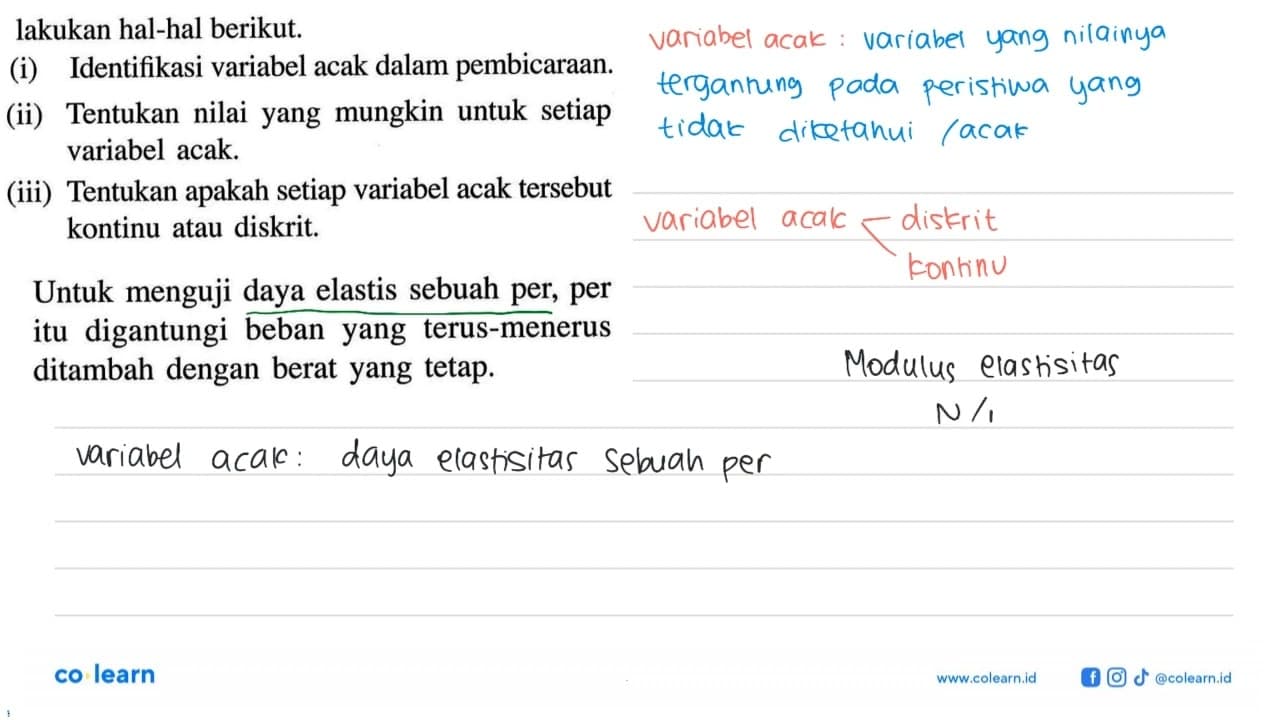 lakukan hal-hal berikut.
(i) Identifikasi variabel acak dalam pembicaraan.
(ii) Tentukan nilai yang mungkin untuk setiap
variabel acak.
(iii) Tentukan apakah setiap variabel acak tersebut
kontinu atau diskrit.
Untuk menguji daya elastis sebuah per, per
itu digantungi beban yang terus-menerus
ditambah dengan berat yang tetap.
variabel acak : variabel yang nilainya
tergantung pada peristiwa yang
tidak diketahui /acak
variabel acak diskrit
kontinu
Modulus elastisitas
N/
variabel acak: daya elastisitas sebuah per
co learn
www.colearn.id
@colearn.id